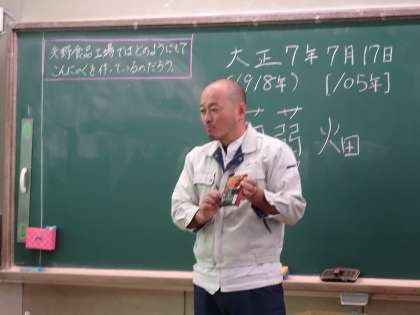 矢野食品工場ではどのようにして
こんにゃくを作っているのだろう。
大正7年7月17日
(1918年) [105年]
蒟蒻 畑